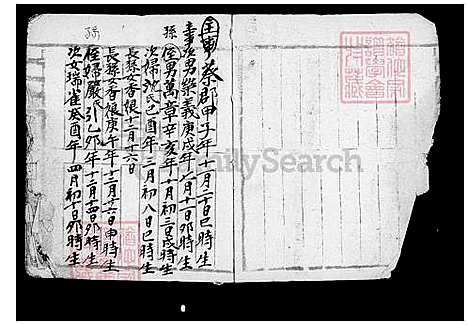 蔡郡甲子年十一月二十日巳時生
次男樂義庚戌年八月十一日卯時生
孫
侄男萬章辛亥年十月初三日戌時生
次婦沈氏己酉年三月初八日巳時生
長孫女香銀十二月十六日
長孫女香銀庚午年十二月十六日申時生
侄婦嚴氏引乙卯年十二月十四日卯時生
孫
次女瑞雀癸酉年四月初十日卯時生
FamilySearch